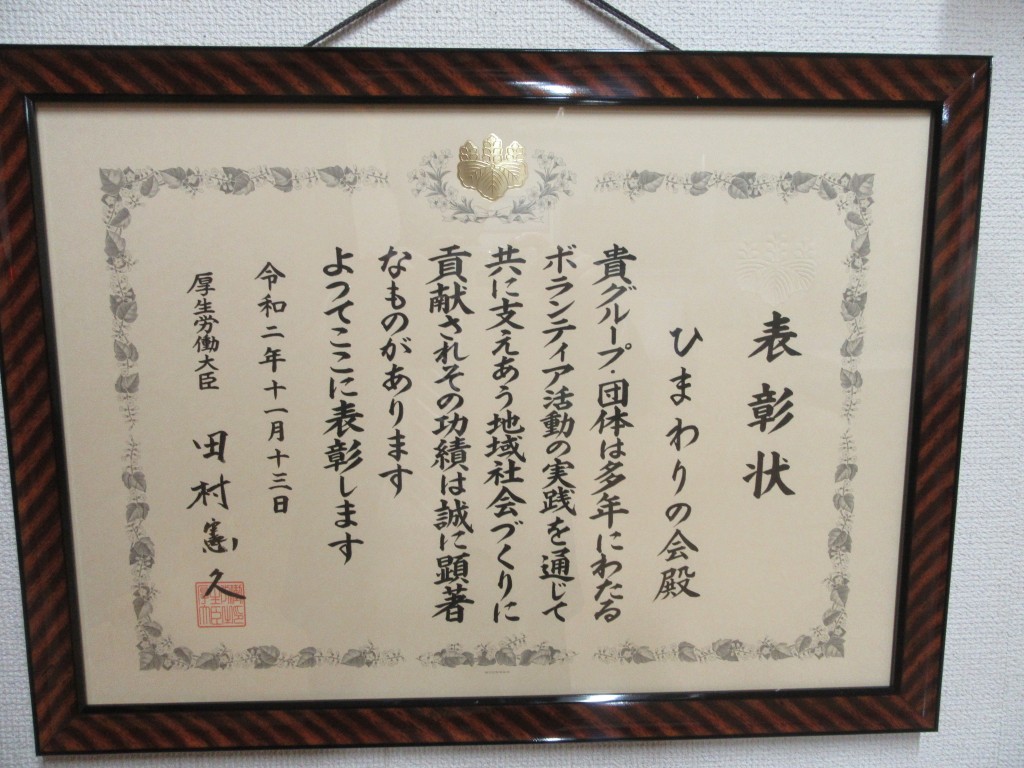 表彰状
ひまわりの会殿
貴グループ・団体は多年にわたる
ボランティア活動の実践を通じて
共に支えあう地域社会づくりに
貢献されその功績は誠に顕著
なものがあります
よってここに表彰します
令和二年十一月十三日
厚生労働大臣 田村憲久